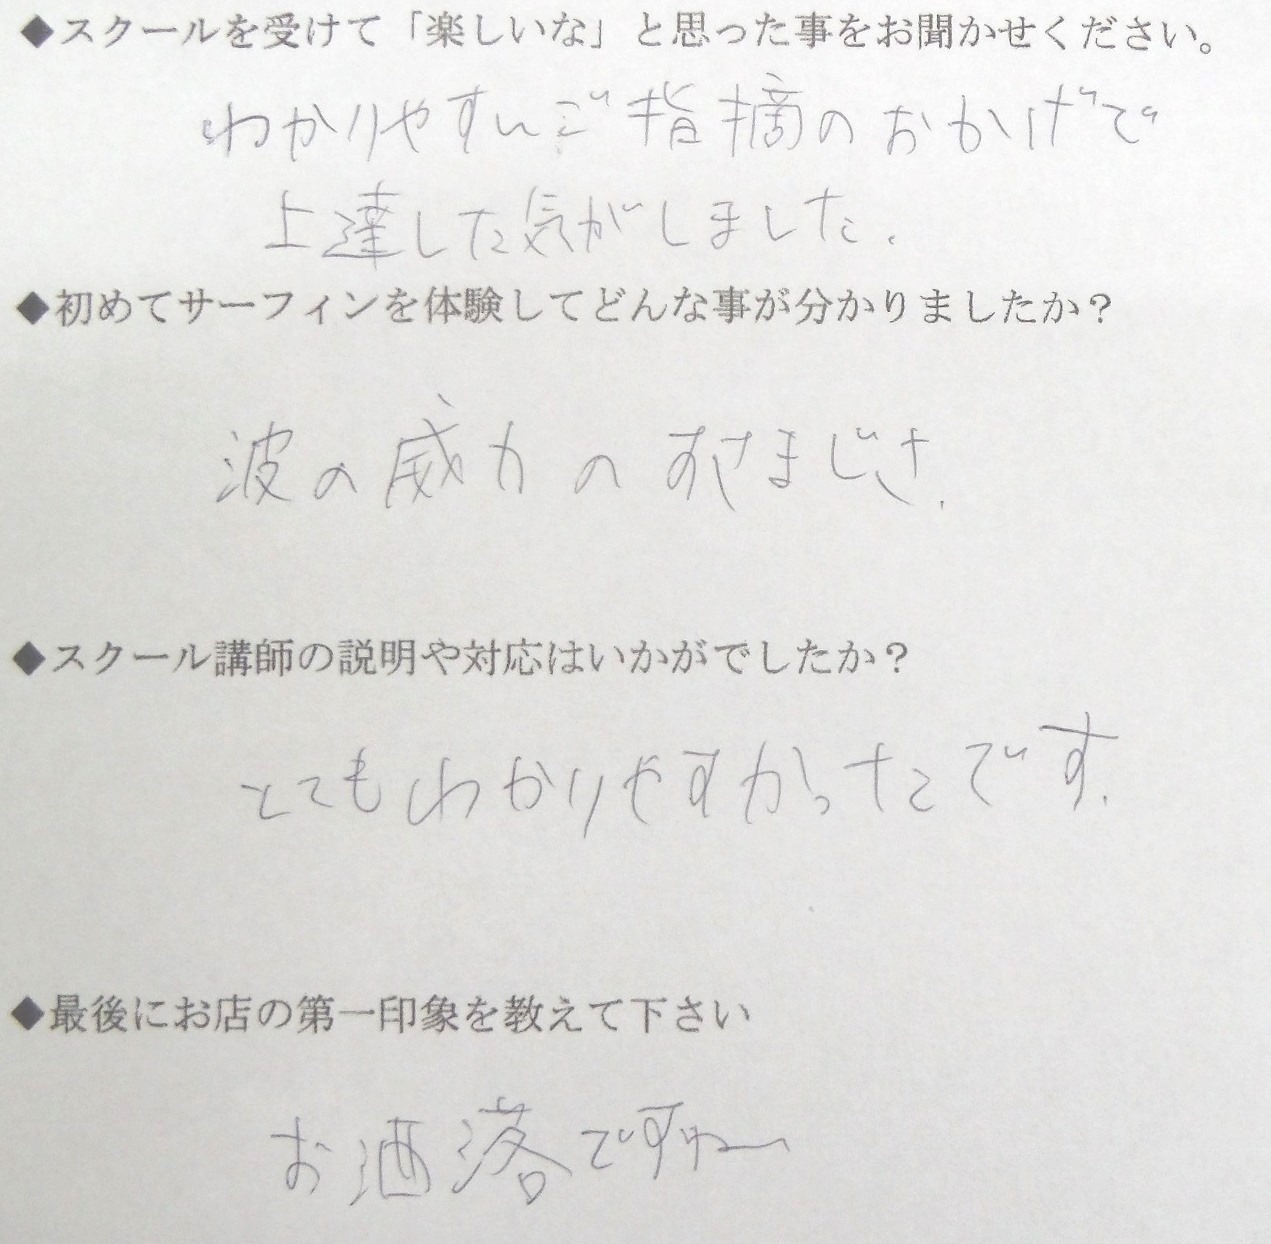 ◆スクールを受けて「楽しいな」と思った事をお聞かせください。
わかりやすいご指摘のおかげで
上達した気がしました.
◆初めてサーフィンを体験してどんな事が分かりましたか？
波の威力のすさまじさ.
◆スクール講師の説明や対応はいかがでしたか？
とてもわかりやすかったです.
◆最後にお店の第一印象を教えて下さい
お洒落ですねー